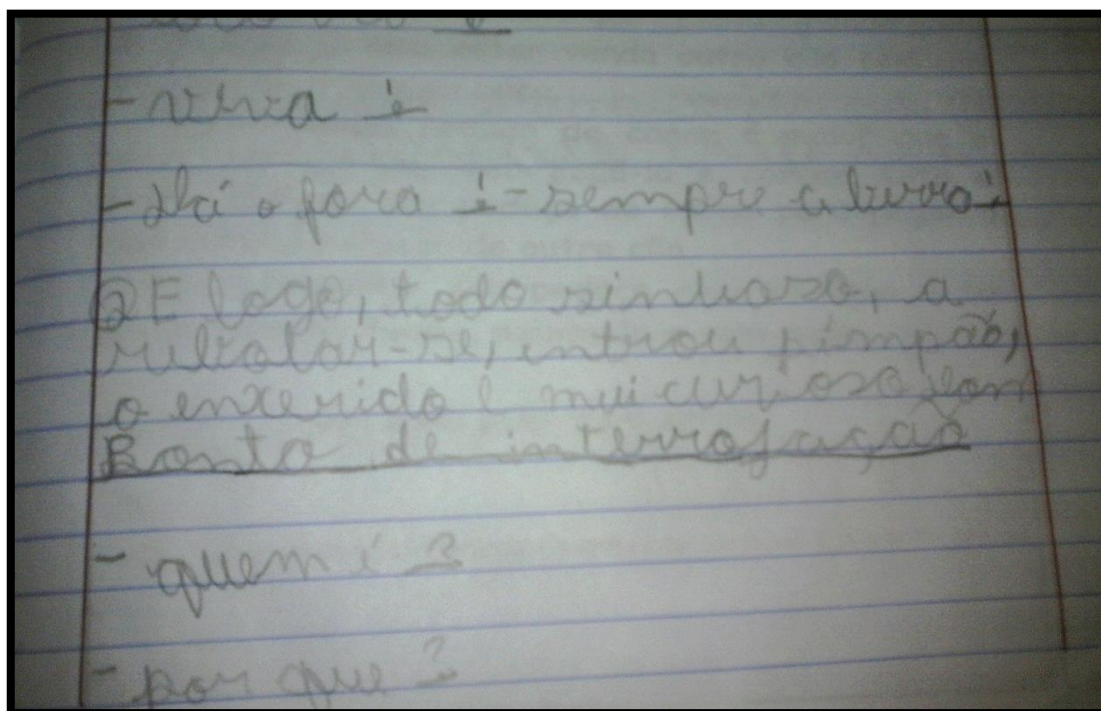 - viva !
- dá o fora ! - sempre a berro !
E logo, todo sinhoso, a
rebolar-se, entrou pimpão,
o enxerido e mui curioso
Ponto de interrogação
- quem é ?
- por que ?